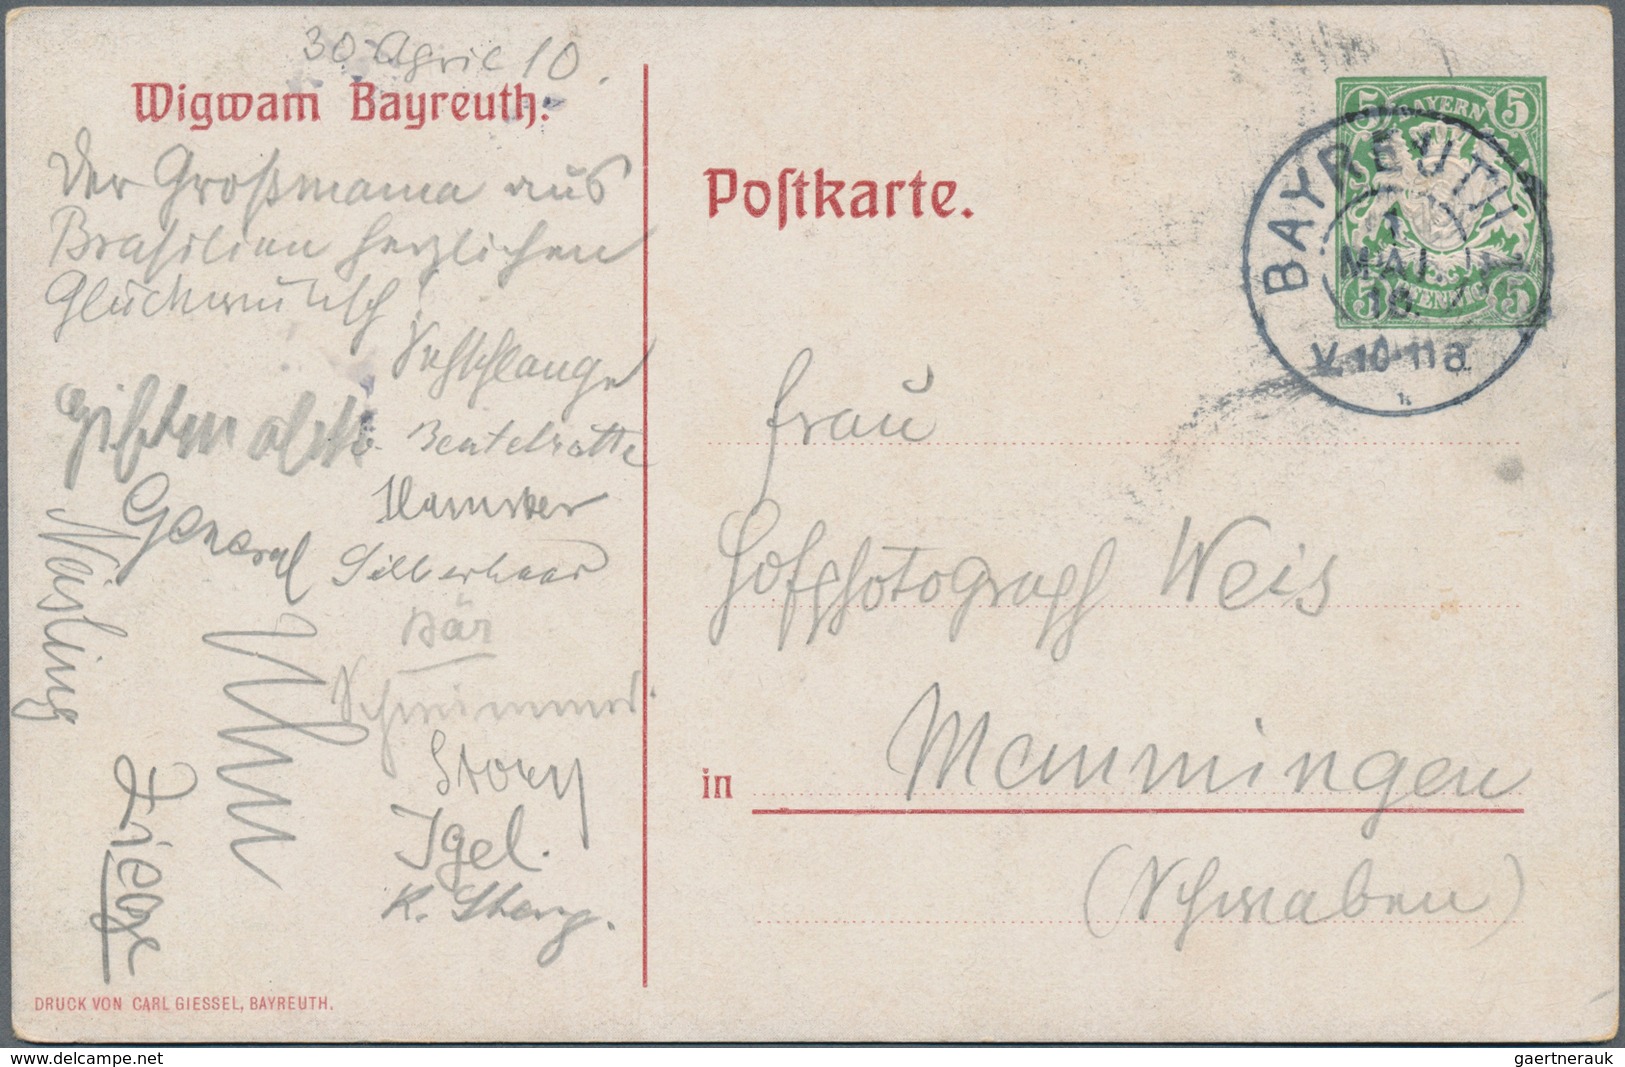 30 April 10.
Wigwam Bayreuth:
Der Großmama aus
Brasilien herzlichen
Glückwunsch!
Seeschlange
Giftnudel
v. Beutelratte
Hamster
General
Silberhaar
Näsling
Bär
Uhu
Schwimmer
Story
Igel.
Ziege
DRUCK VON CARL GIESSEL, BAYREUTH.
Postkarte.
5 BAYERN 5
5 PFENNIG 5
BAYREUTH 1
1
MAI
10.
V.10-11a
Frau
Hofphotograph Weis
in Memmingen
(Schwaben)
delcampe.net
gaertnerauk